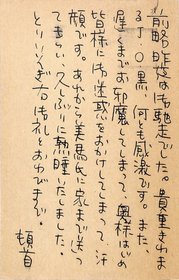 前略 昨夜は御馳走でした。貴重きわま
る 黒、何も感激です。また
遅くまでお邪魔してしまって、奥様はじめ
皆様に御迷惑をおかけしてしまって、汗
顔です。あれから美馬氏に家まで送っ
てもらい、久しぶりに熟睡いたしました。
とりいそぎ右御礼とおわびまで
頓首